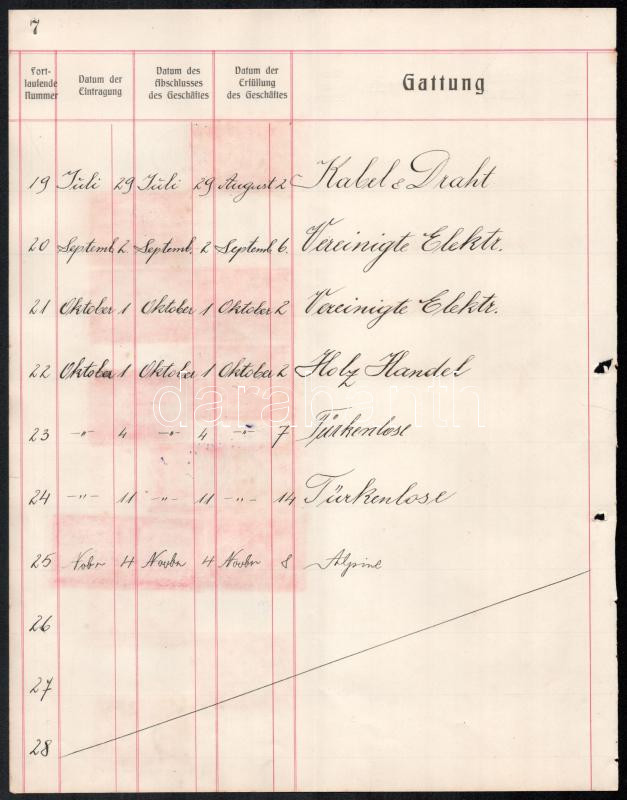 7
Fort-
laufende
Nummer
Datum der
Eintragung
Datum des
Abschlusses
des Geschäftes
Datum der
Erfüllung
des Geschäftes
Gattung
19 Juli 29 Juli 29 August 2 Kabel & Draht
20 Septemb. 2 Septemb. 2 Septemb. 6. Vereinigte Elektr.
21 Oktober 1 Oktober 1 Oktober 2 Vereinigte Elektr.
22 Oktober 1 Oktober 1 Oktober 2 Holz Handel
23 -"- 4 -"- 4 -"- 7 Türkenlose
24 -"- 11 -"- 11 -"- 14 Türkenlose
25 Nobr 4 Novbr 4 Novbr 8 Alpine
26
27
28
darabanth